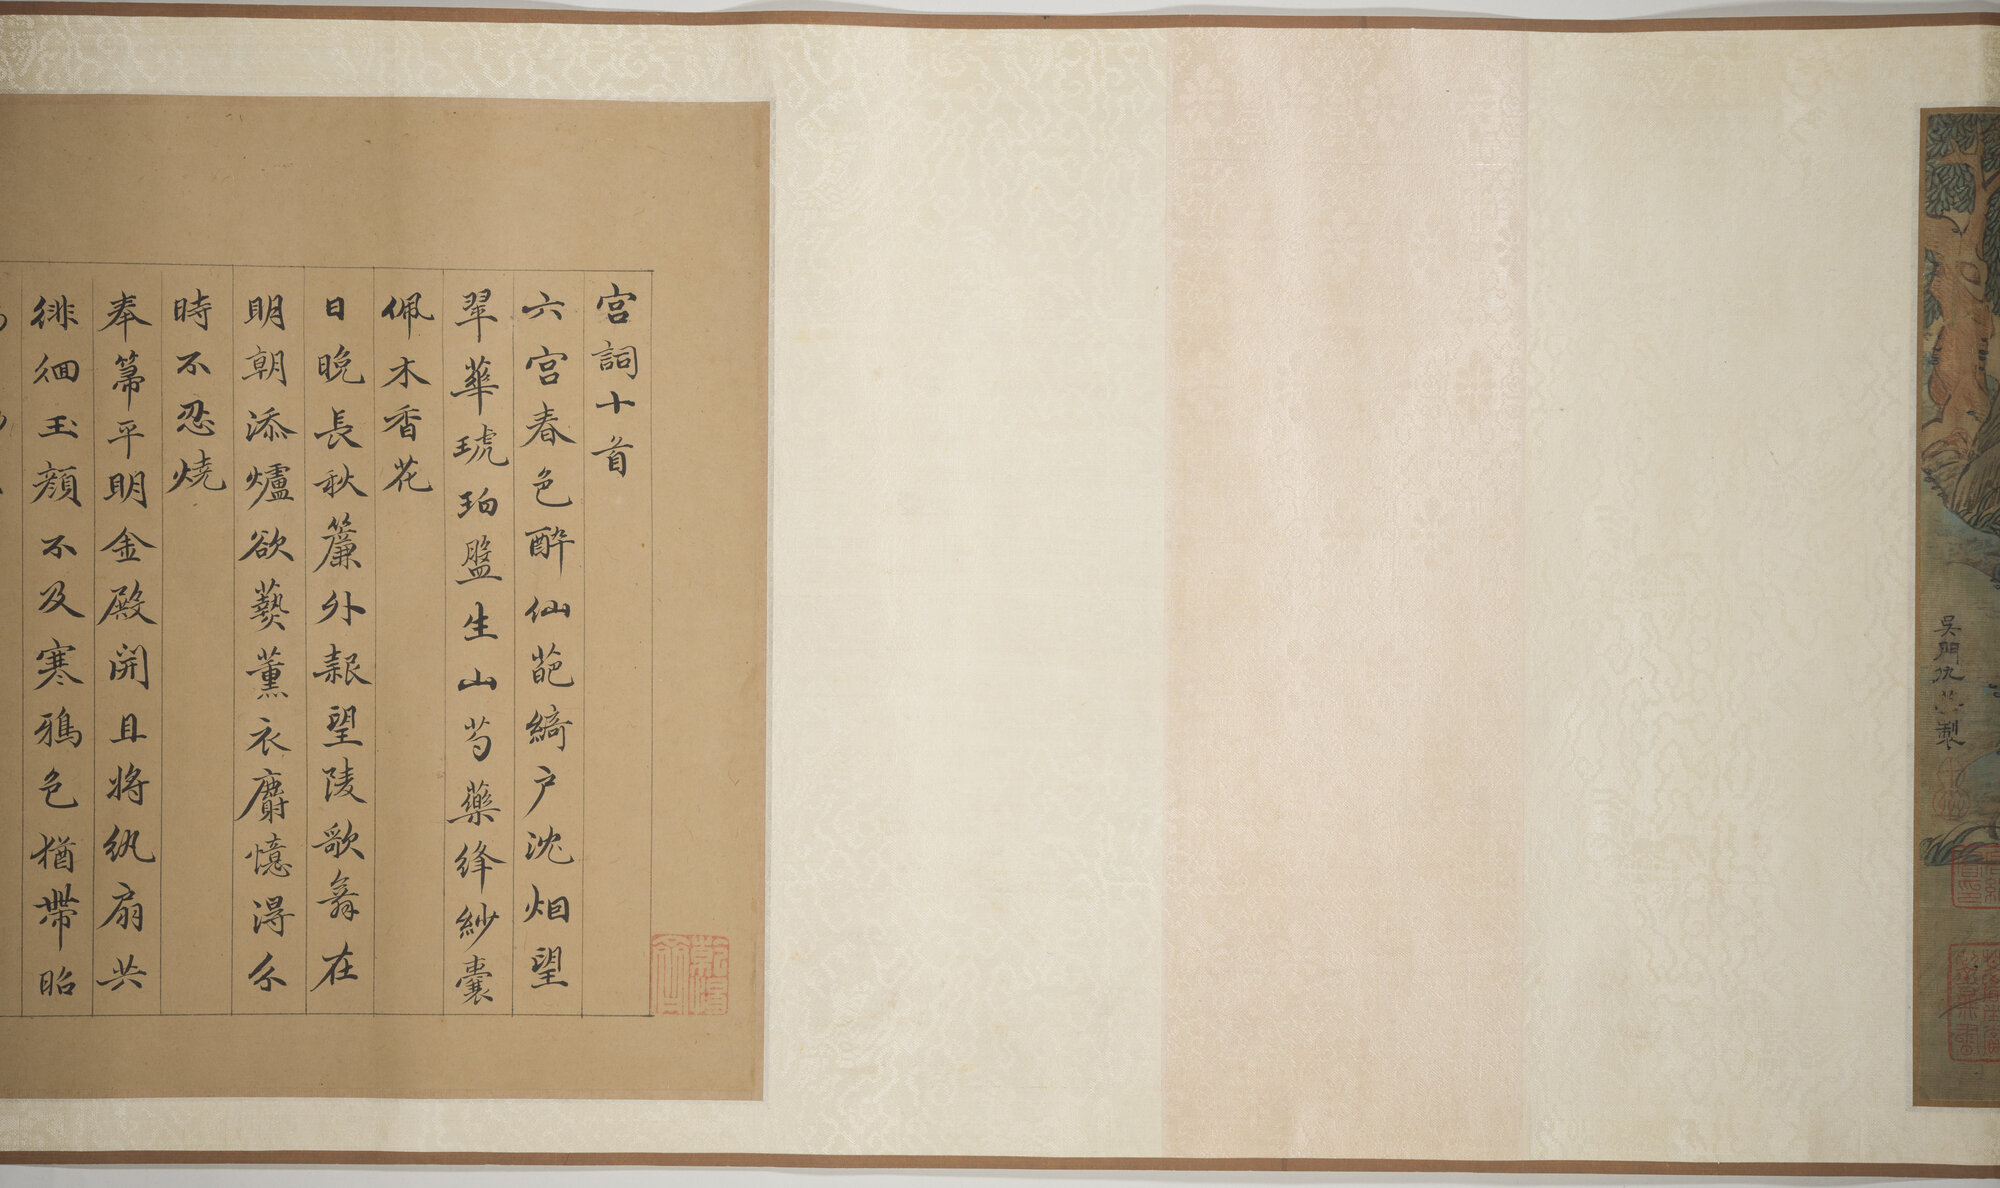 吳門仇英製
宮詞十首
六宮春色醉仙葩綺戶沈烟望
翠華琥珀盤生山芍藥絳紗囊
佩木香花
日晚長秋簾外報望陵歌舞在
明朝添爐欲爇薰衣麝憶得分
時不忍燒
奉箒平明金殿開且將紈扇共
徘徊玉顏不及寒鴉色猶帶昭